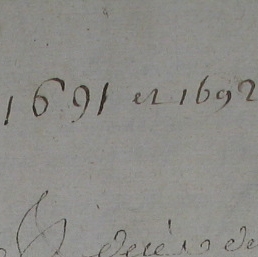 1691 et 1692
décès de